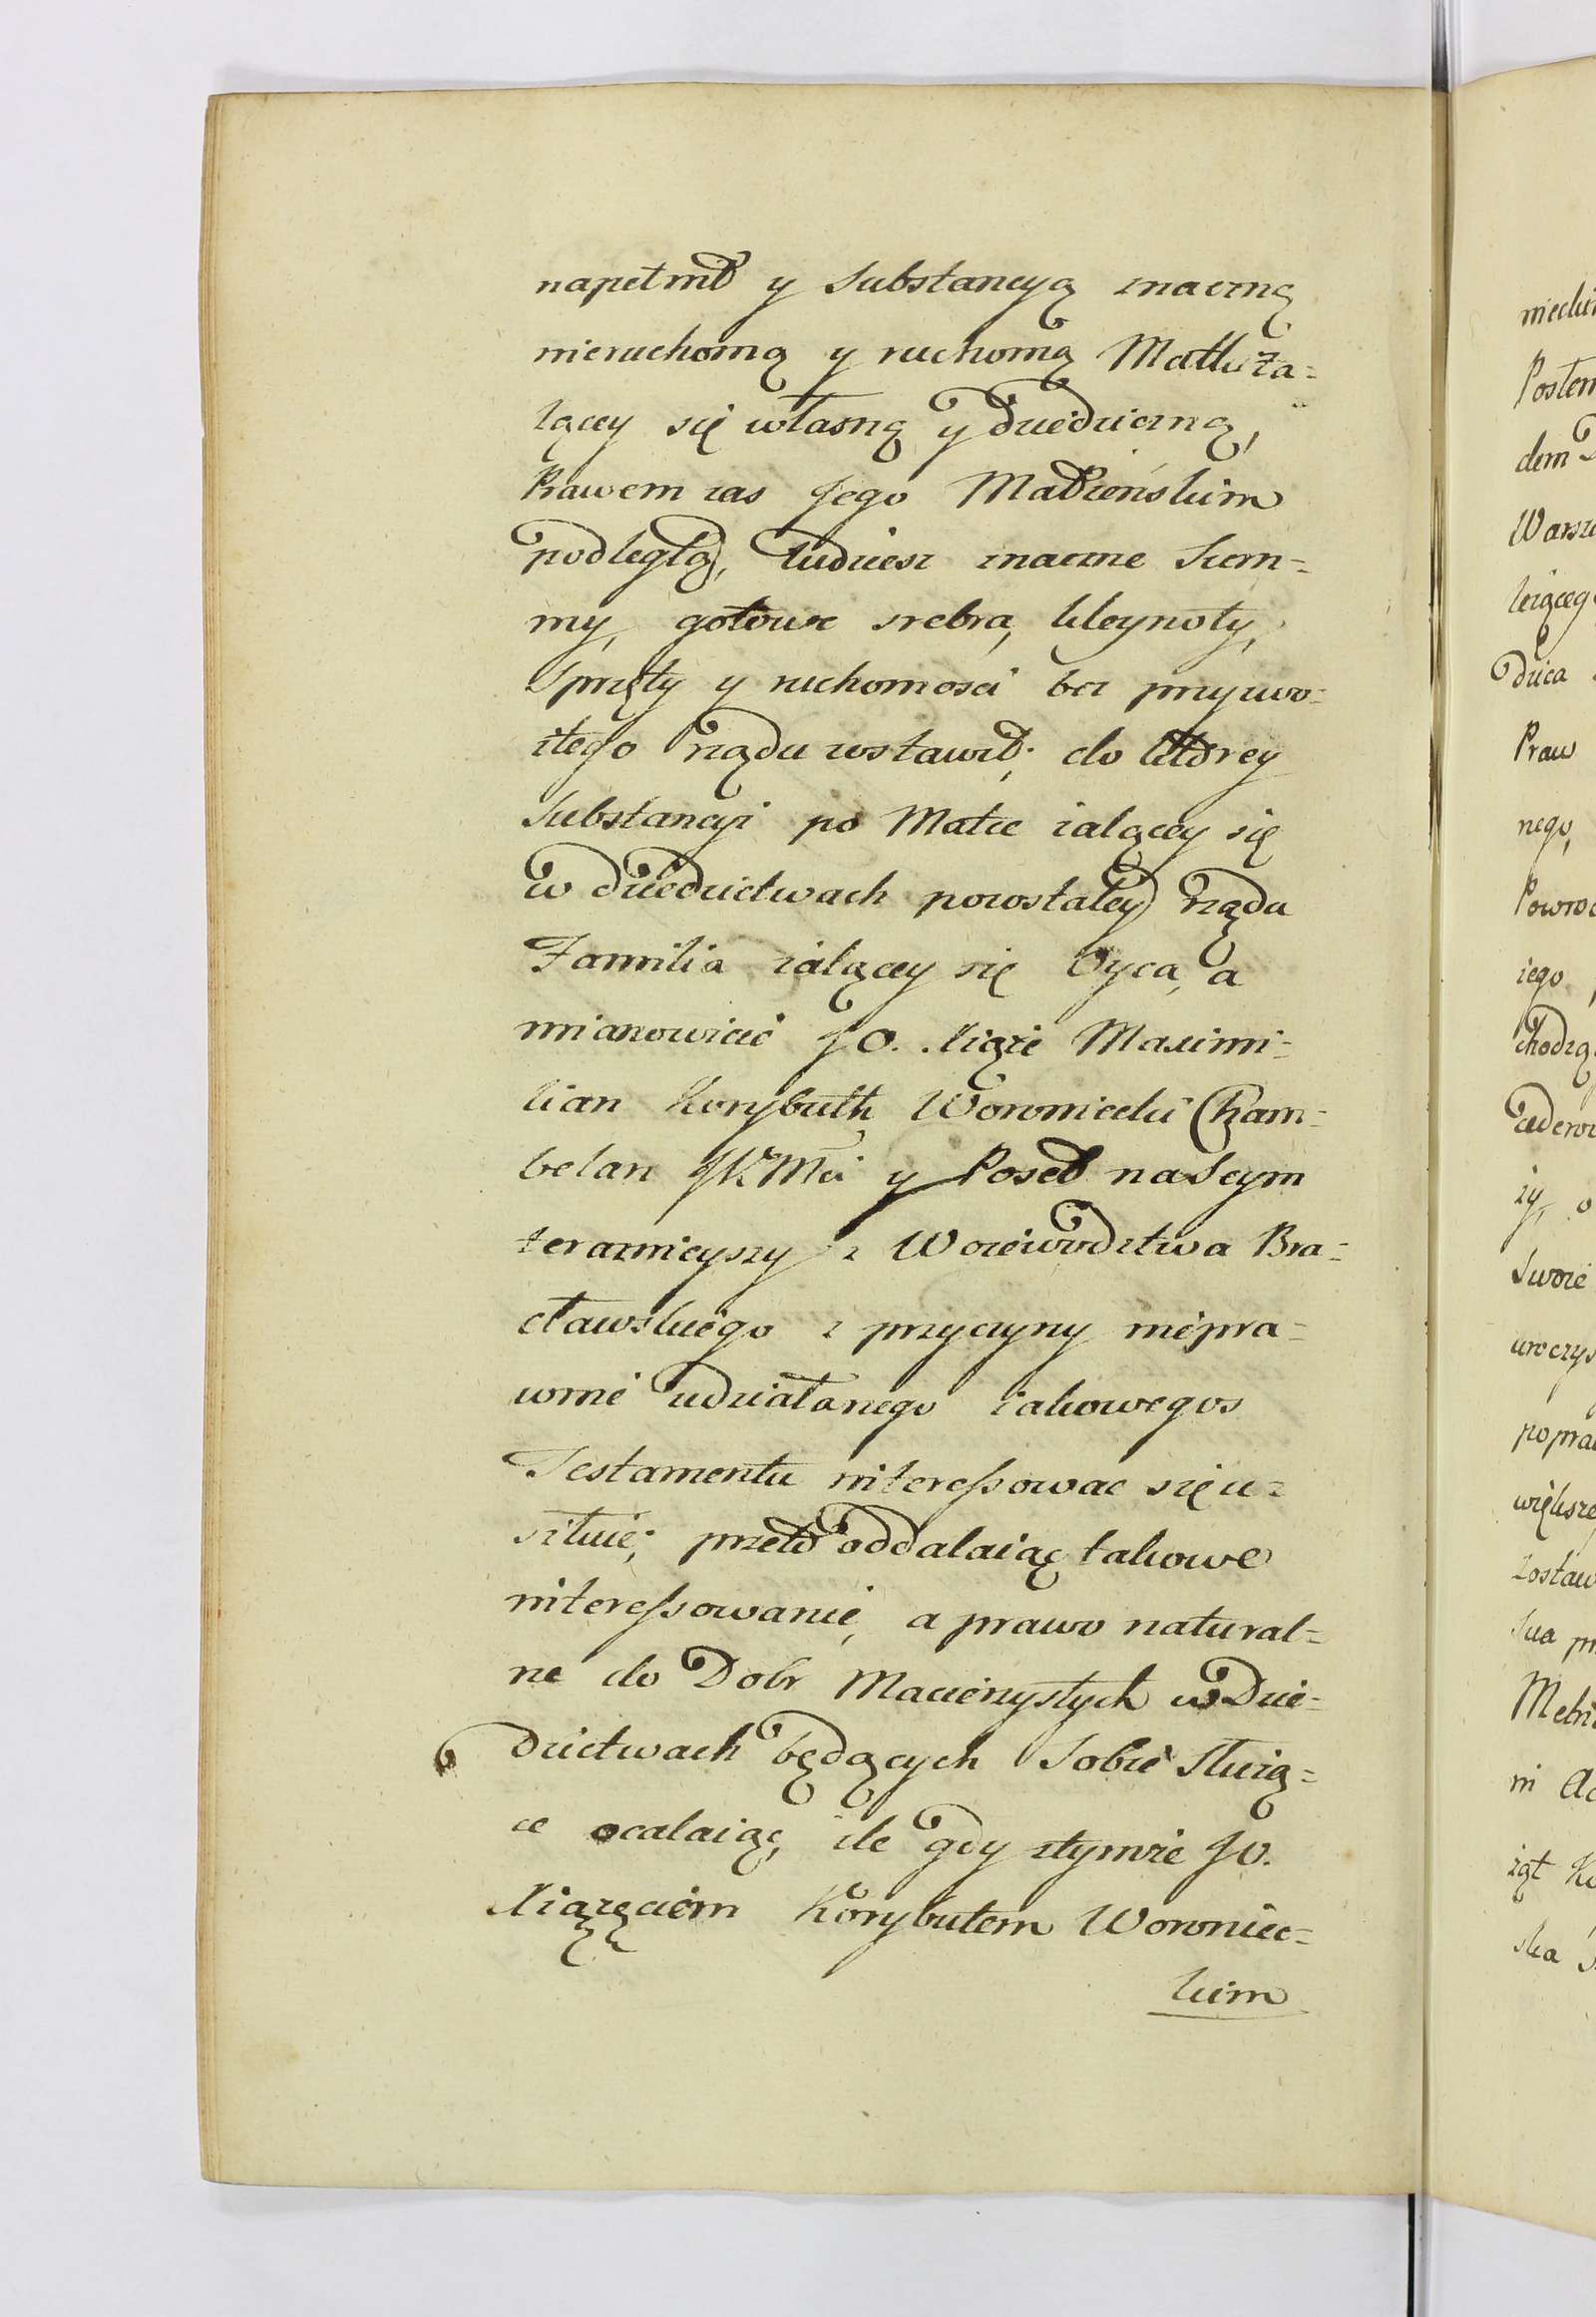 napełnił y Substancyą znaczną
nieruchomą y ruchomą Matki Ża-
lącey się własną y dziedziczną,
Prawem zas Jego Małżeńskim
podległą, tudziesz znaczne Sum-
my, gotowe srebra, kleynoty,
Sprzęty y ruchomosci bez przyzwo-
itego rządu zostawił; do którey
Substancyi po Matce żalącey się
w dziedzictwach pozostałey rządu
Familia żalącey się Oyca, a
mianowicie JO. Xiąże Maximi-
lian Korybuth Woroniecki Cham-
belan JKMci y Poseł na Seym
teraznieyszy z Woiewodztwa Bra-
cławskiego z przyczyny niepra-
wnie udziałanego iakowegos
Testamentu interessowac się u-
siłuie; przeto oddalaiąc takowe
interessowanie, a prawo natural-
ne do Dobr Macierzystych w Dzie-
dzictwach będących Sobie służą-
ce ocalaiąc, ile gdy ztymże JO.
Xiążęciem Korybutem Woroniec-
kim
Posłem
Praw
nego,
iego
ży, o
Swoie